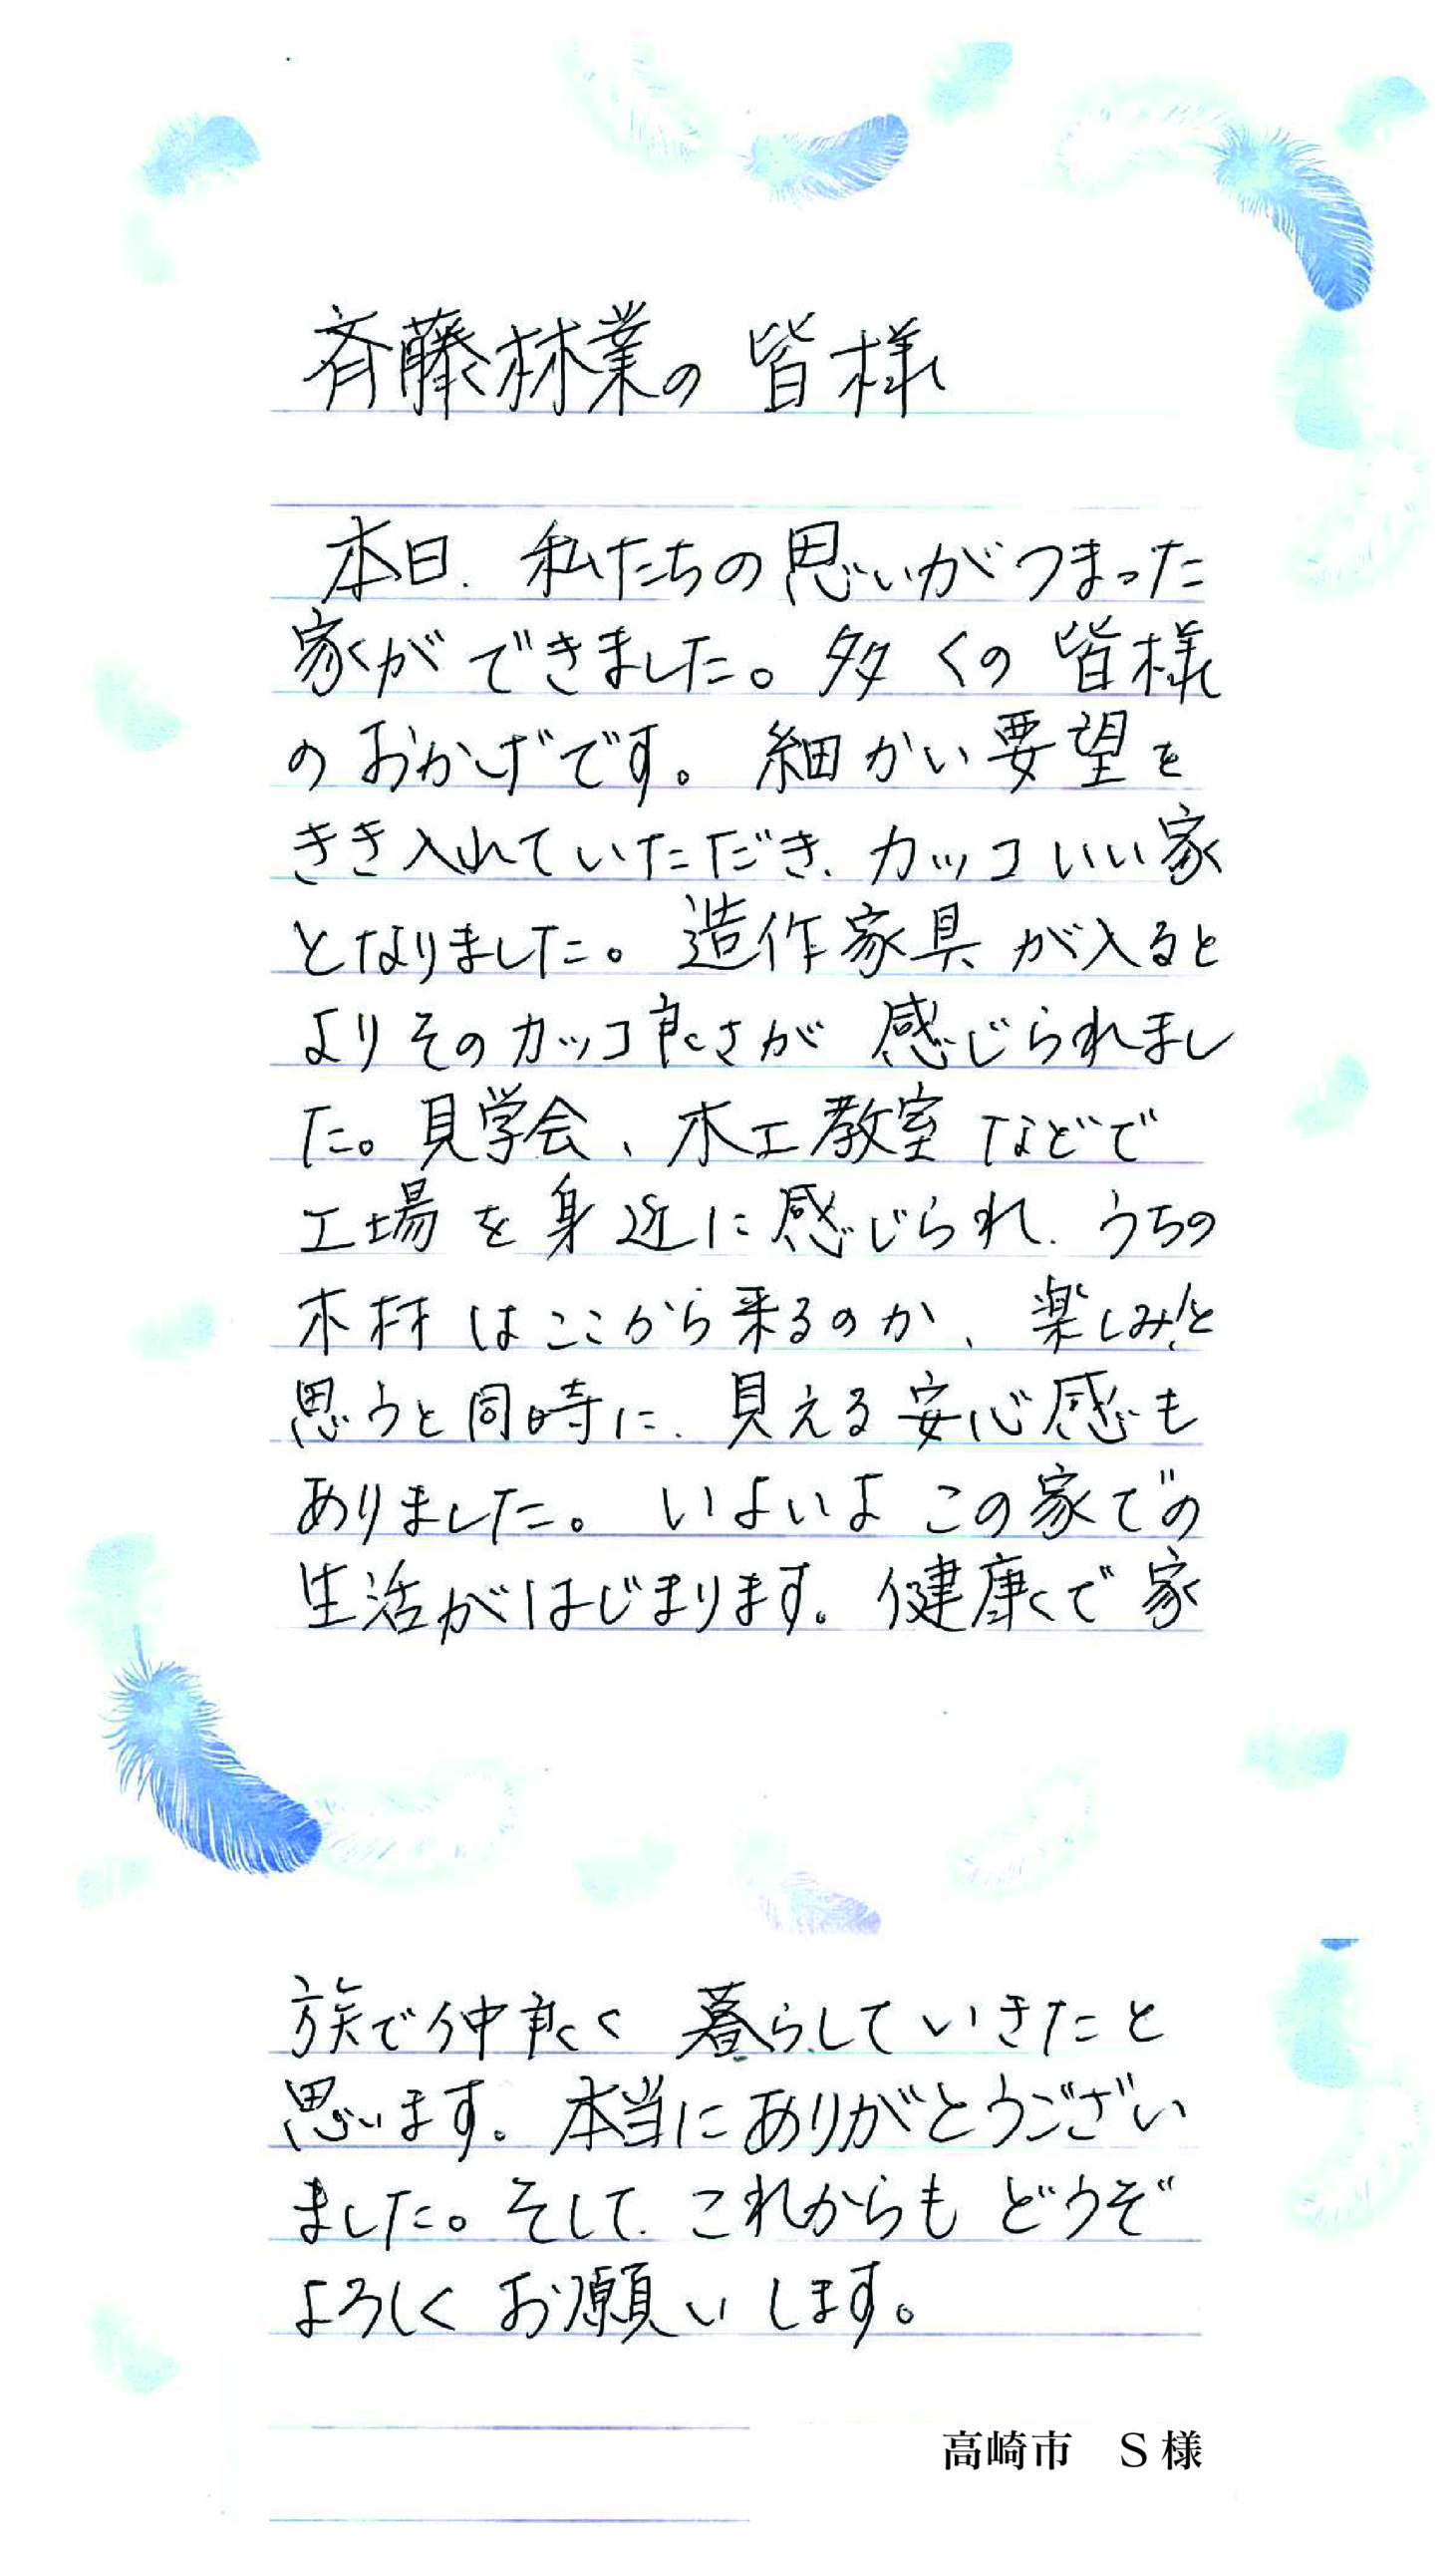 斉藤林業の皆様
本日、私たちの思いがつまった
家ができました。多くの皆様
のおかげです。細かい要望を
きき入れていただき、カッコいい家
となりました。造作家具が入ると
よりそのカッコ良さが感じられまし
た。見学会、木工教室などで
工場を身近に感じられ、うちの
木材はここから来るのか、楽しみ!と
思うと同時に、見える安心感も
ありました。いよいよこの家での
生活がはじまります。健康で家
族で仲良く暮らしていきたと
思います。本当にありがとうござい
ました。そして、これからもどうぞ
よろしくお願いします。
高崎市　S様